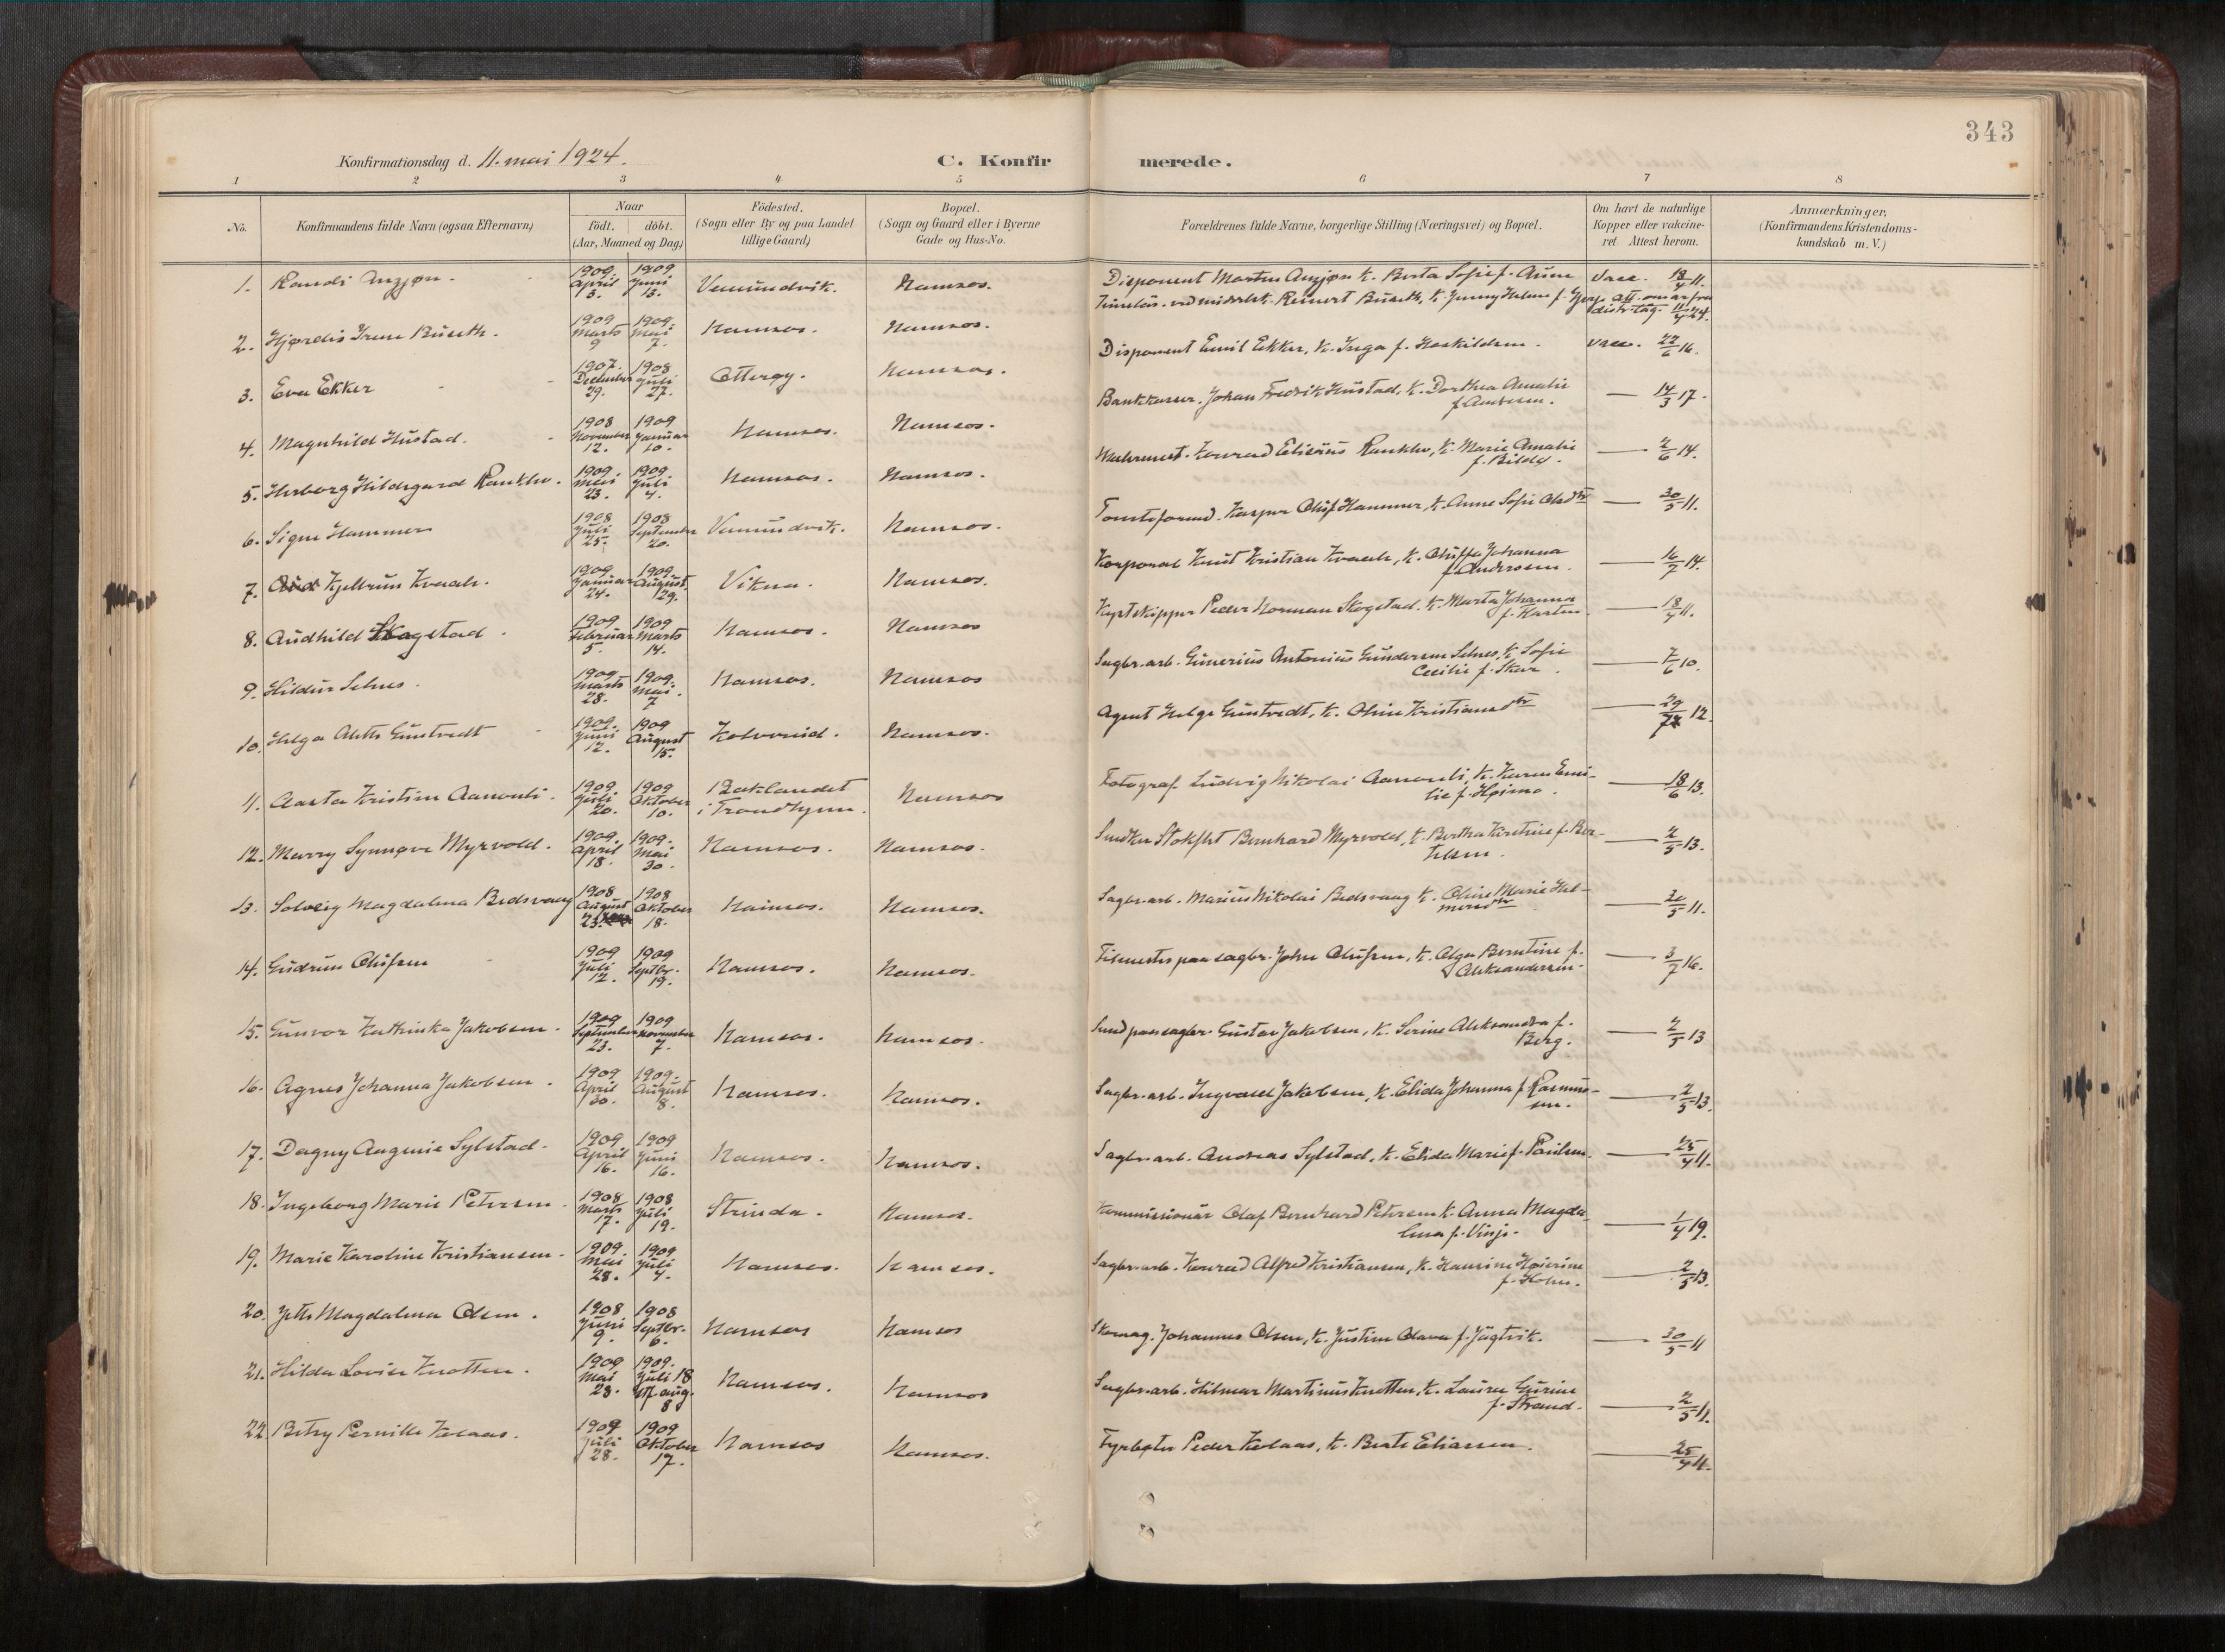 343
Konfirmationsdag d. 11. mai 1924.
C. Konfirmerede.
1 2 3 4 5 6 7 8
No.
Konfirmandens fulde Navn (ogsaa Efternavn)
Naar
födt. döbt.
(Aar, Maaned og Dag)
Födested.
(Sogn eller By og paa Landet
tillige Gaard)
Bopæl.
(Sogn og Gaard eller i Byerne
Gade og Hus-No.
Forældrenes fulde Navne, borgerlige Stilling (Næringsvei) og Bopæl.
Om havt de naturlige
Kopper eller vakcine-
ret Attest herom.
Anmærkninger,
(Konfirmandens Kristendoms-
kundskab m. V.)
1. Randi 1909. April 13. 1909. Juni 13. Vemundvik. Namsos. Disponent Martin K. Berta Sofie f. Aune vacc. 18/4 11.
2. Hjørdis Irene Buseth. 1909 Marts 9 1909. Mai 7. Namsos. Namsos. Reinert Buseth, K. Jenny Helene f. 11/4 24.
3. Eva Ekker 1907. December 29. 1908 Juli 27. Otterøy. Namsos. Disponent Emil Ekker, K. Inga f. Haskildsen. vacc. 22/6 16.
4. Magnhild Hustad. 1908 November 12. 1909 Januar 10. Namsos. Namsos. Bankkasser. Johan Fredrik Hustad, K. Dorthea Amalie
f. Andersen. — 14/3 17.
5. Herborg Hildegard Rankho. 1909. Mai 23. 1909. Juli 4. Namsos. Namsos. Konrad Elisæus K. Marie Amalie
— 2/6 14.
6. Signe Hammer 1908 Juli 25. 1908 September 20. Vemundvik. Namsos. Kaspar Oluf Hammer, K. Anna Sofie Olsdtr — 30/5 11.
7. Kjellrun Kvaale. 1909. Januar 24. 1909. August 29. Vikna. Namsos. Korporal Knut Kristian K. Oluffa Johanna
f. Anderssen. — 16/7 14.
8. Audhild Skogstad. 1909 Februar 5. 1909 Marts 14. Namsos. Namsos Peder Norman Skogstad. K. Marta Johanna
— 18/4 11.
9. Hildur Selnes. 1909 Marts 28. 1909. Mai 7 Namsos. Namsos Sagbr.-arb. Gunerius Antonius Gundersen Selnes, K. Sofie
Cecilie f. Skar. — 7/6 10.
10. Helga Gustvedt 1909. Juni 12. 1909 August 15. Kolvereid. Namsos. Agent Helge Gustvedt, K. Oline Kristiansdtr — 12.
11. Aasta Kristine 1909 Juli 20. 1909 Oktober 10. Baklandet
i Trondhjem. Namsos Fotograf Ludvig Nikolai K. Karen Emi-
lie f. — 18/6 13.
12. Marry Synnøve Myrvold. 1909. April 18. 1909. Mai 30. Namsos. Namsos. Snedker Bernhard Myrvold, K. Bertha Kirstine f. Ber-
telsen. — 2/5 13.
13. Solveig Magdalena Bredsvaag 1908 August 23. 1908 Oktober 18. Namsos. Namsos. Sagbr.-arb. Marius Nikolai K. Oline Marie Hel-
mersdtr — 11.
14. Gudrun Olufsen 1909 Juli 12. 1909 Septbr. 19. Namsos. Namsos. Filmester paa sagbr. John Olufsen, K. Olga Berntine f.
Aleksandersen. — 3/7 16.
15. Gunvor Kathinka Jakobsen. 1909 September 23. 1909 November 7. Namsos. Namsos. Smed paa sagbr. Gustav Jakobsen, K. Serine Aleksandra f.
Berg. — 2/5 13
16. Agnes Johanna Jakobsen. 1909 April 30. 1909. August 8. Namsos. Namsos. Sagbr.-arb. Ingvald Jakobsen, K. Elida Johanna f. Rasmus-
sen. — 2/5 13.
17. Dagny Augenie Sylstad. 1909 April 16. 1909 Juni 16. Namsos. Namsos. Sagbr.-arb. Andreas Sylstad, K. Elida Marie f. Paulsen. — 25/4 11.
18. Ingeborg Marie Petersen 1908 Marts 17. 1908 Juli 19. Strinda. Namsos. Kommissionær Olaf Bernhard Petersen K. Anna Magda-
lena f. Vinje. — 1/4 19.
19. Marie Karoline Kristiansen. 1909. Mai 28. 1909 Juli 4. Namsos. Namsos. Sagbr.-arb. Konrad Alfred Kristiansen, K. Hansine
f. Holm. — 2/5 13.
20. Jette Magdalena Olsen. 1908 Juni 9. 1908 Septbr. 6. Namsos Namsos Skomag. Johannes Olsen, K. Justine Olava f. Jagtvik. — 30/5 11
21. Hilda Lovise Knotten. 1909 Mai 28. 1909. Juli 18 aug. 8 Namsos. Namsos Sagbr.-arb. Hilmar Martinus Knotten, K. Laura Gurine
f. Strand. — 2/5 11.
22. Betsy Pernille Kolaas. 1909 Juli 28. 1909 Oktober 17. Namsos Namsos. Fyrbøter Peder Kolaas, K. Berte Eliassen. — 25/4 11.